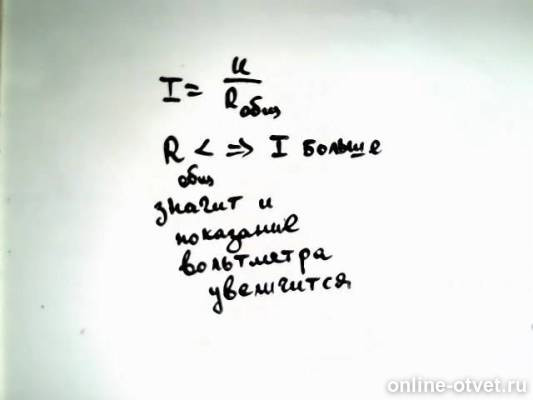 I = U / Rобщ
Rобщ < => I больше
значит и
показание
вольтметра
увеличится
online-otvet.ru